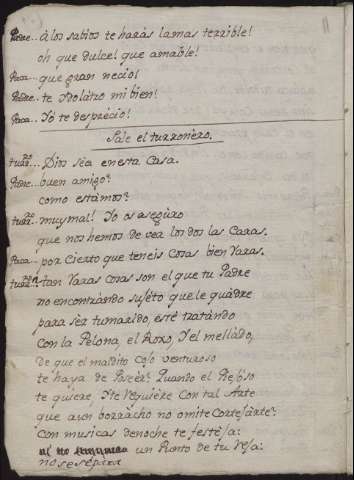 Pedre... à los sabios te haràs lamas terrible!
oh que dulce! que amable!
Paca... que gran necio!
Pedre... te Ydolatro mi bien!
Paca... Yó te desprécio!
Sale el turronèro.
turr.ro... Dios séa en esta Casa.
Pedre... buen amigo?
como estàmos?
turr.ro... muy mal! Yo os asegùro
que nos hemos de vèr los dos las Caras.
Paca... por Cierto que teneis Cosas bien Raras.
turr.ro tan Raras Cosas son el que tu Padre
no encontràndo sujéto que le quàdre
para sér tu marido, esté tratàndo
con la Pelona, el Roxo, Y el mellàdo,
de que el maldito cojo venturoso
te haya de Poseèr: Quando el
te quiere, Y te Requiére Con tal Arte
que aun borràcho no omite Cortejàrte:
Con musicas de noche te festéja:
un Punto de tu Réja:
no se sepàra